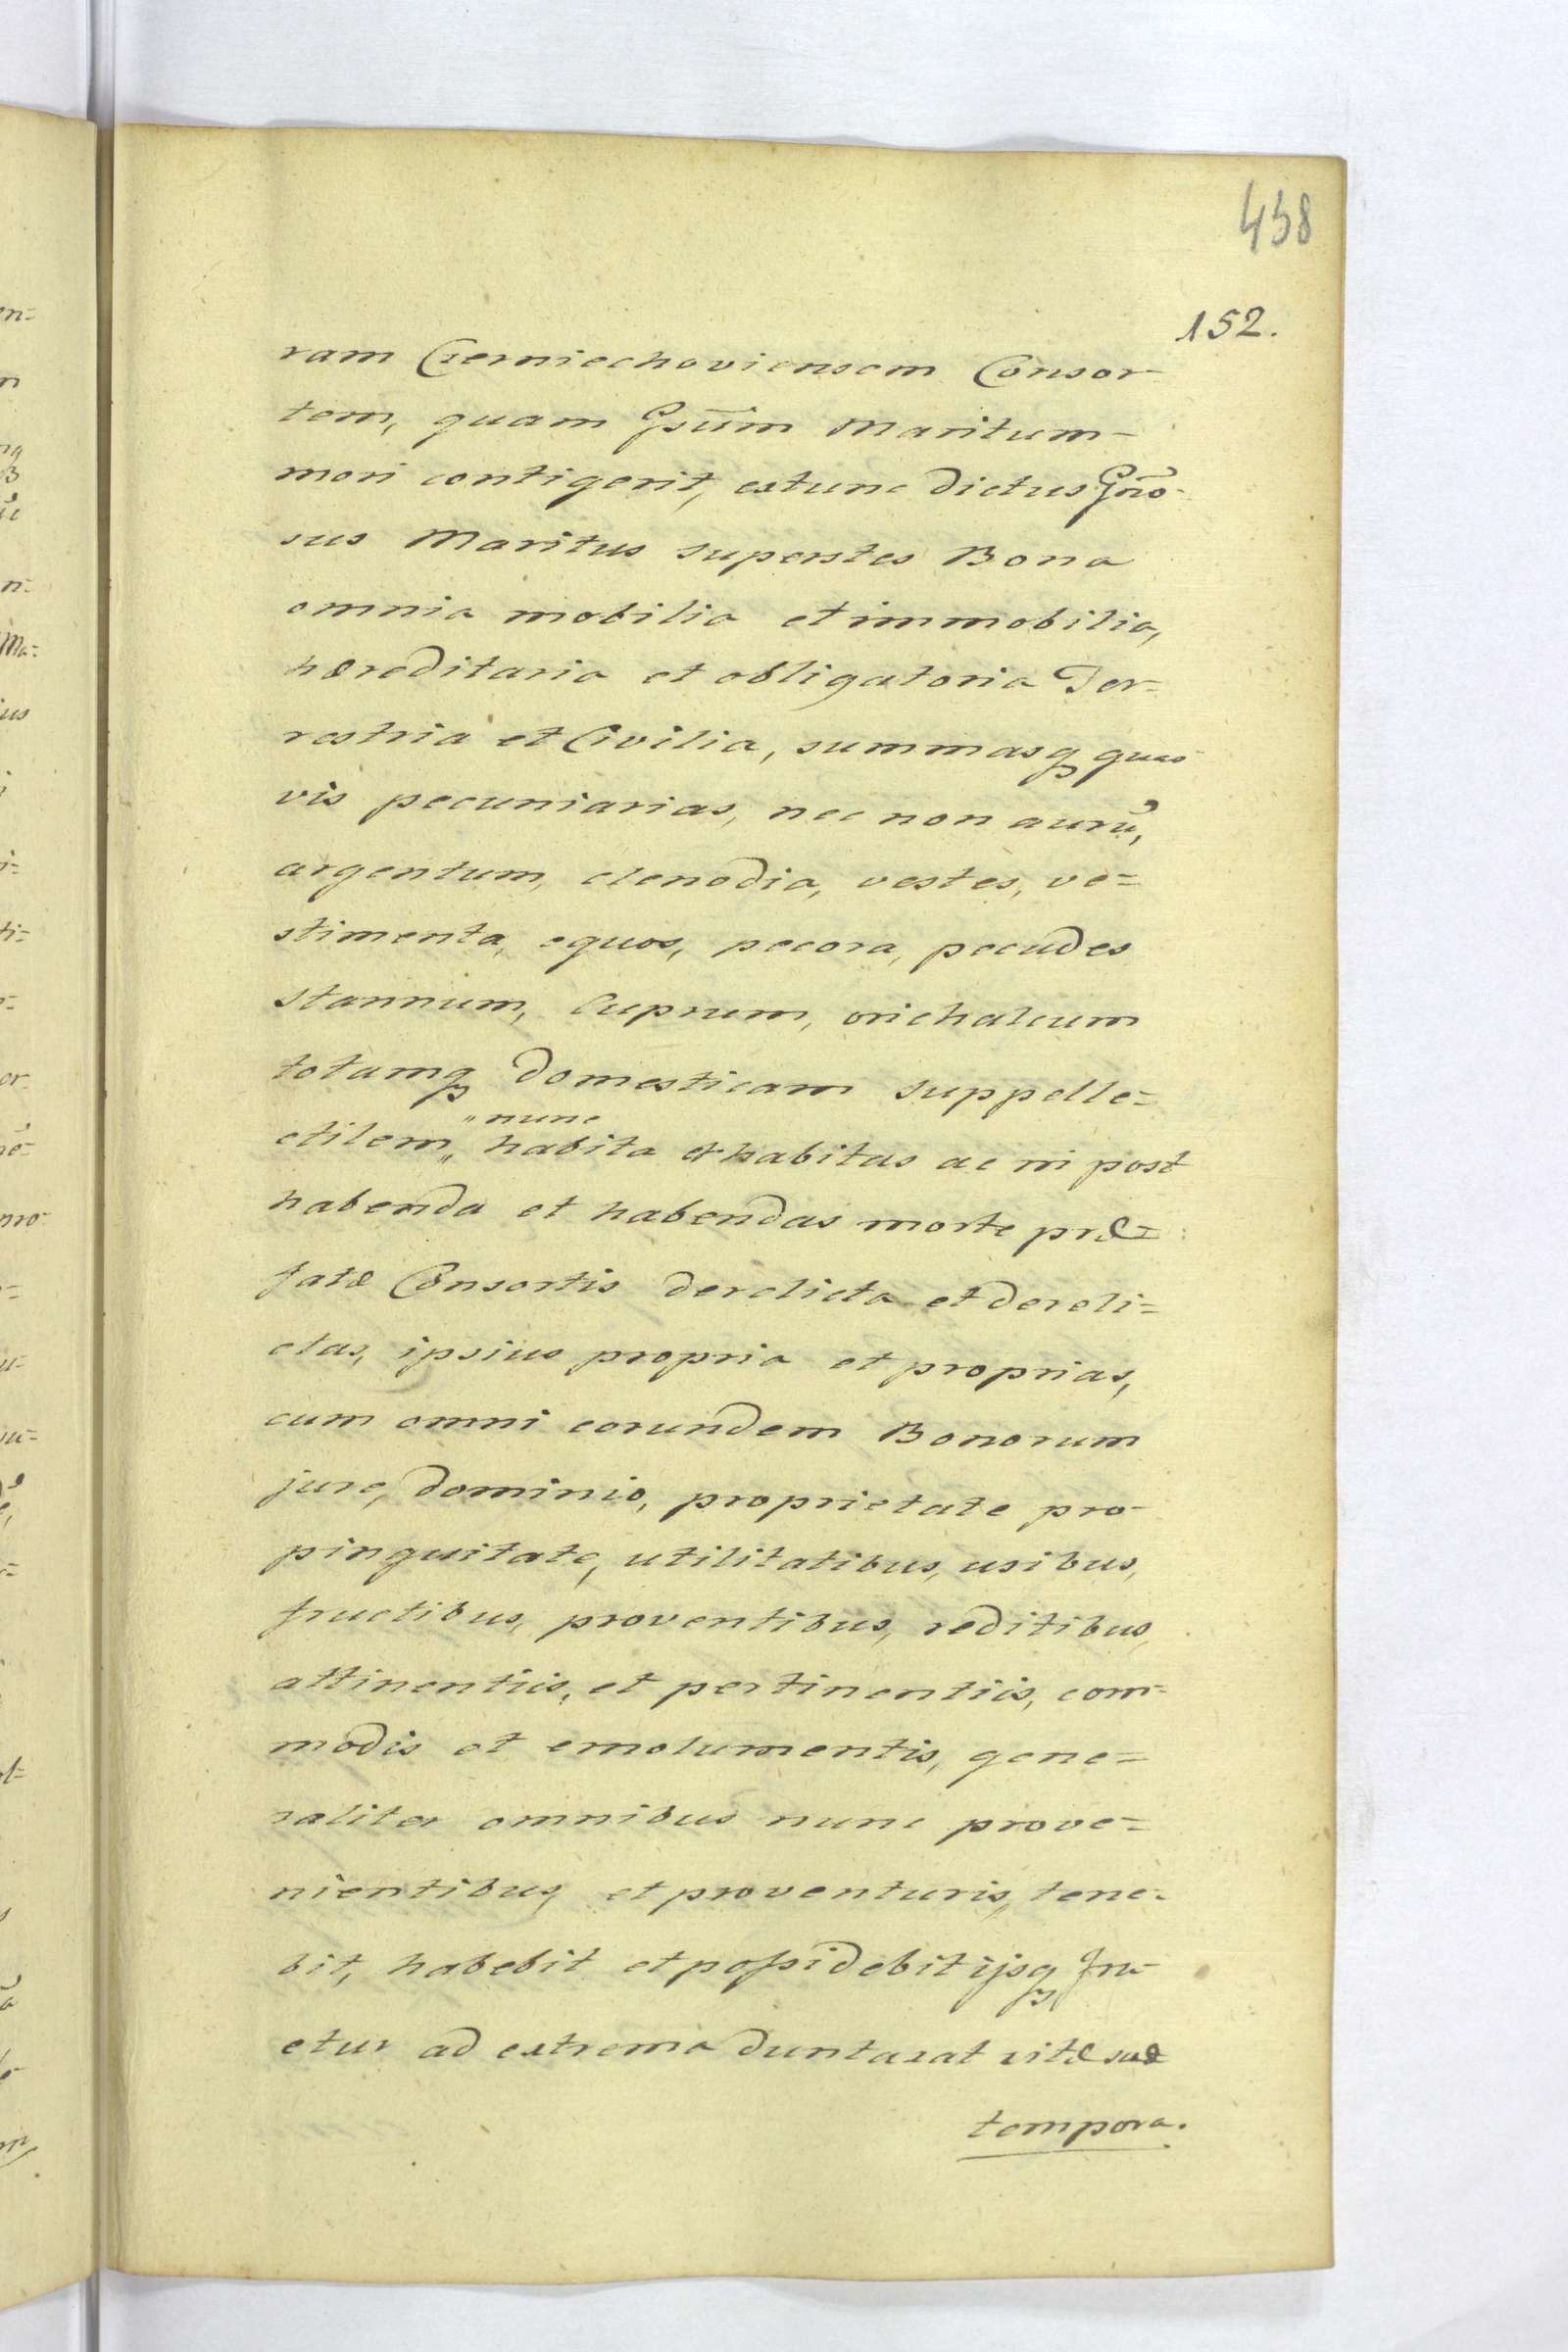 458
152.
ram Czerniechoviensem Consor-
tem, quam Gsūm Maritum-
mori contigerit, extunc dictus Gn̄o-
sus Maritus superstes Bona
omnia mobilia et immobilia,
hæreditaria et obligatoria Ter-
restria et Civilia, summasq quas-
vis pecuniarias, nec non aurū,
argentum, clenodia, vestes, ve=
stimenta, equos, pecora, pecudes
stannum, Cuprum, orichalcum
totamq Domesticam suppelle=
ctilem „nunc habita et habitas ac in post
habenda et habendas morte præ=
fatæ Consortis derelicta et dereli=
ctas, ipsius propria et proprias,
cum omni eorundem Bonorum
jure, dominio, proprietate pro-
pinquitate, utilitatibus, usibus,
fructibus, proventibus, reditibus,
attinentiis, et pertinentiis, com=
modis et emolumentis, gene=
raliter omnibus nunc prove=
nientibus, et proventuris, tene-
bit, habebit et poſsidebit ijsq fru-
etur ad extrema duntaxat vitæ suæ
tempora.